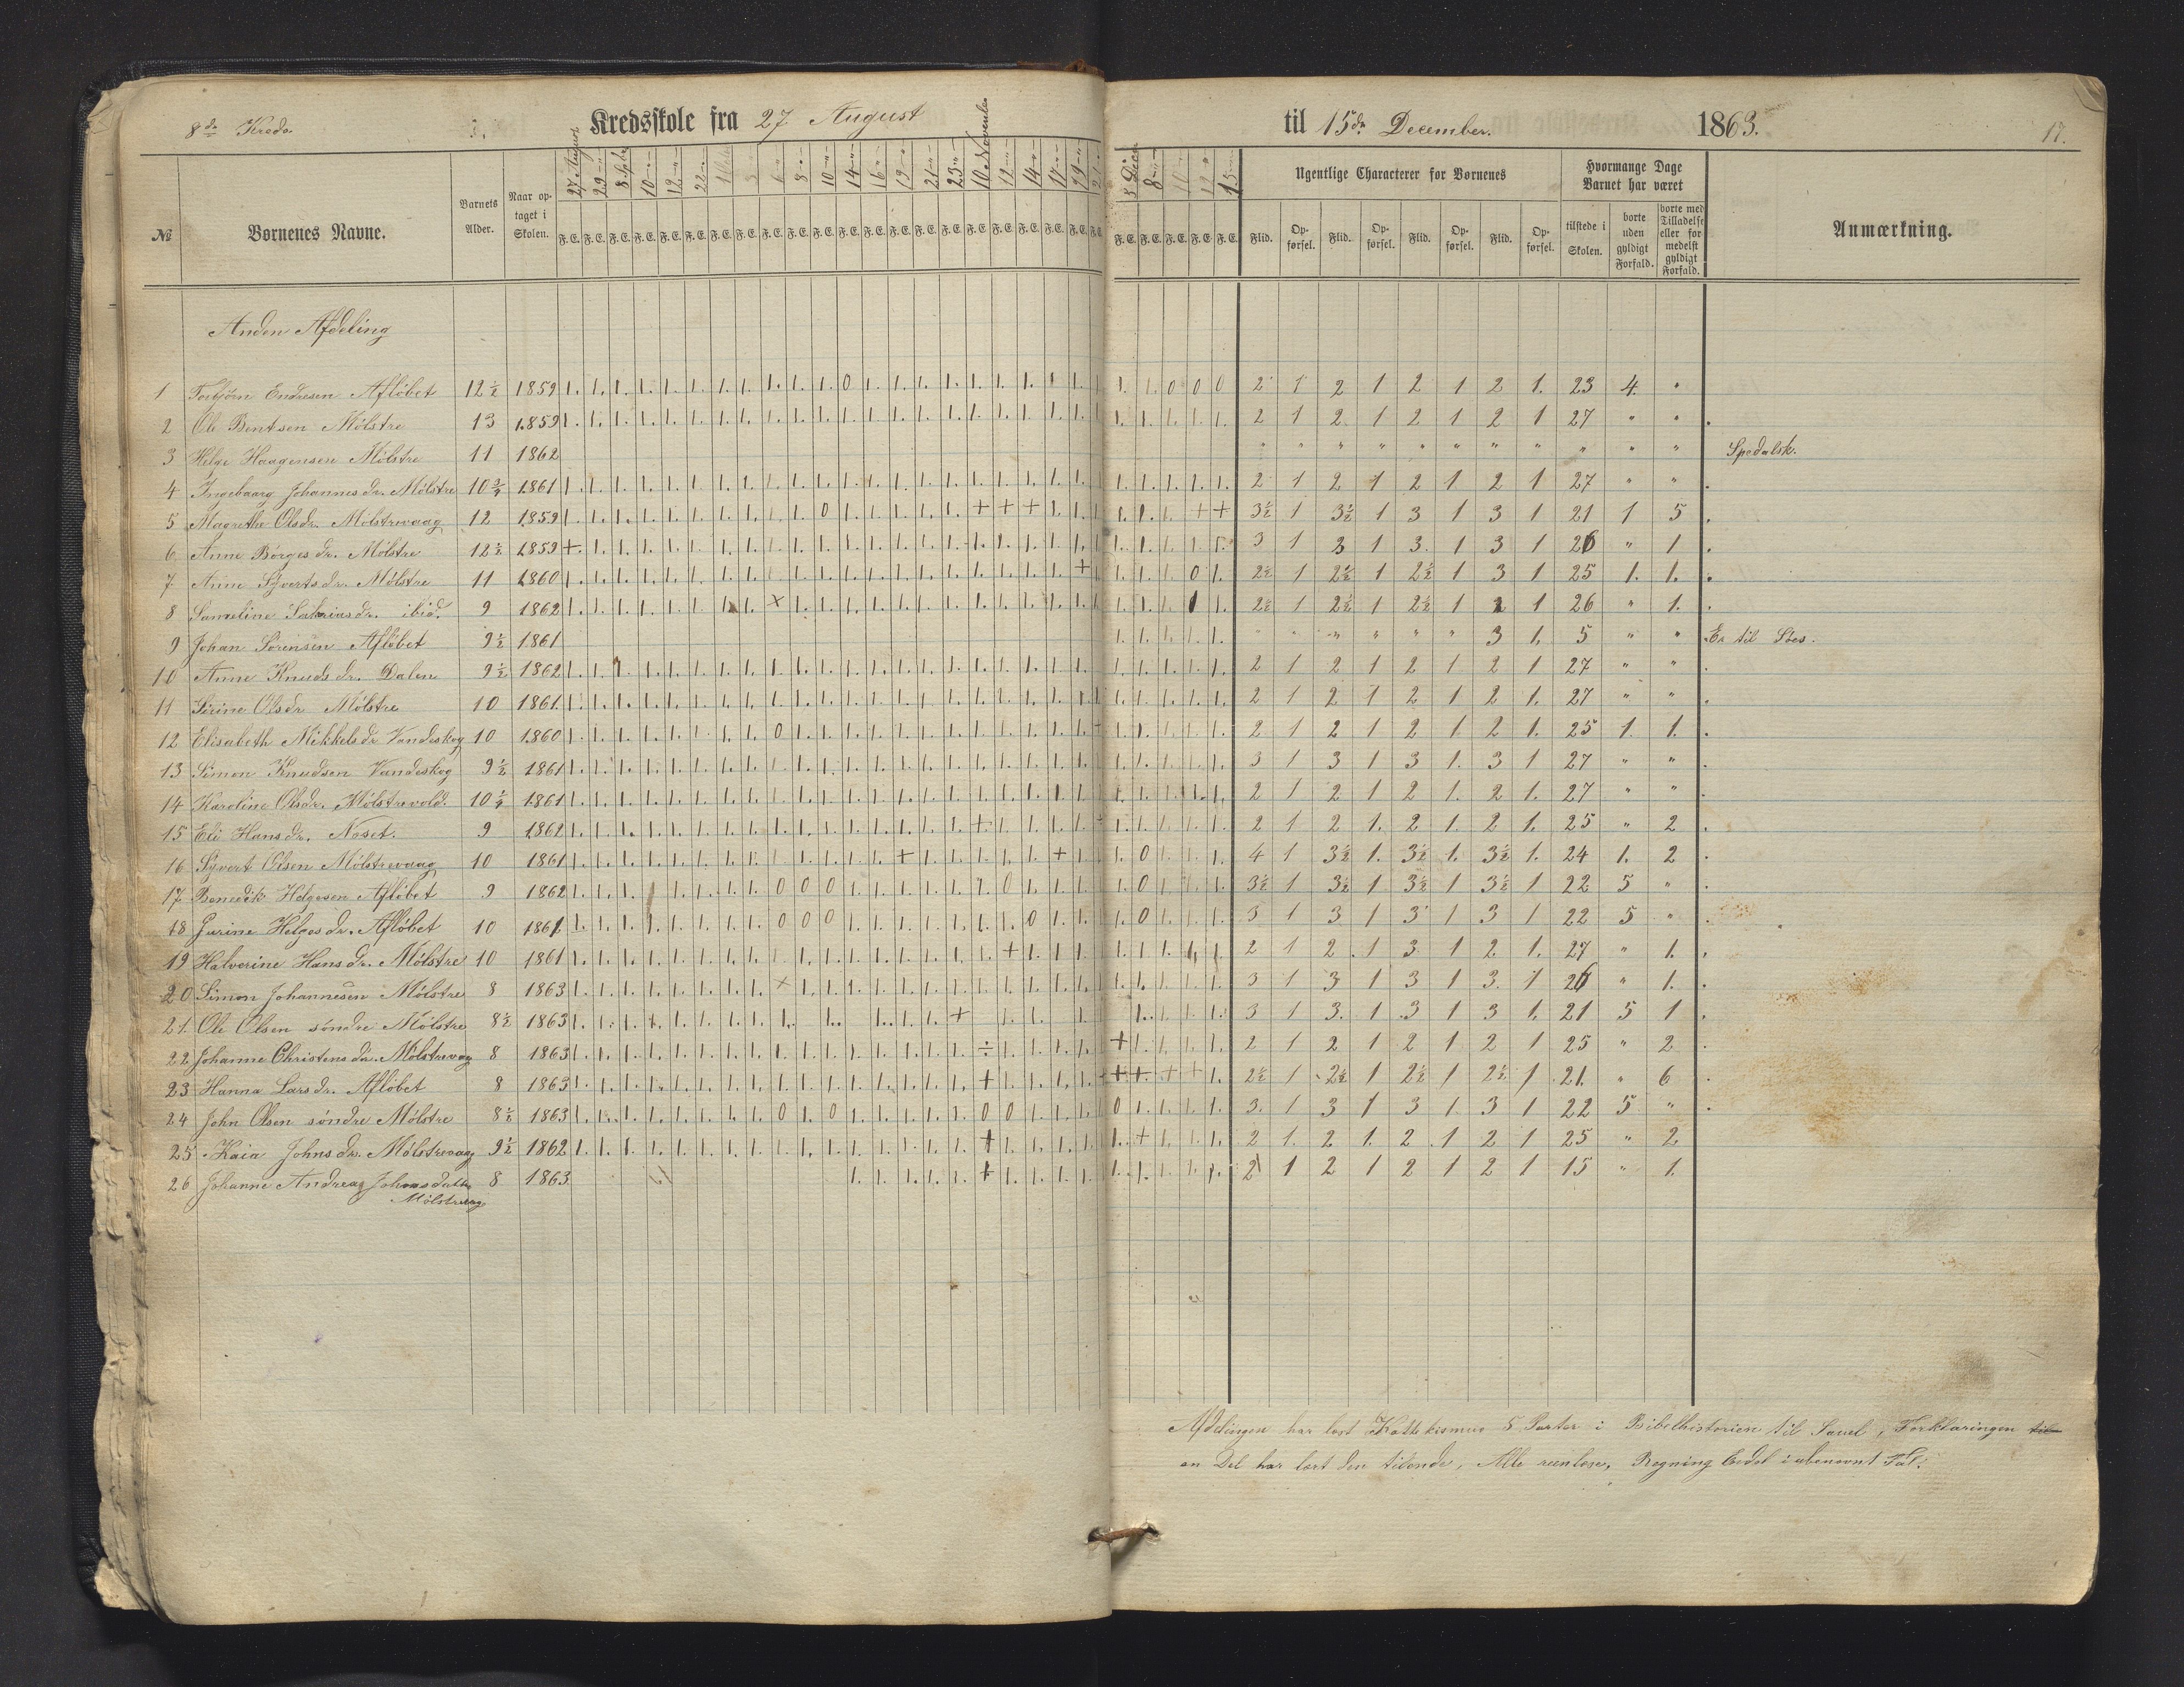 8de Kreds. Kredsskole fra 27 August til 15de December. 1863. 17.
27 August 29 " 8 Septbr 10 " 12 " 22 " 3 " 6 " 8 " 10 " 14 " 16 " 19 " 21 " 23 " 10 November 12 " 14 " 17 " 19 " 21 " 3 Decem 8 " 10 " 12 " 15 "
№ Børnenes Navne. Barnets Alder. Naar optaget i Skolen. F. E. Ugentlige Characterer for Børnenes Flid. Opførsel. Flid. Opførsel. Flid. Opførsel. Flid. Opførsel. Hvormange Dage Barnet har været tilstede i Skolen. borte uden gyldigt Forfald. borte med Tilladelse eller formedelst gyldigt Forfald. Anmærkning.
Anden Afdeling
1 Torbjørn Endresen Afløbet 12 ½ 1859 2 1 2 1 2 1 2 1. 23 4. "
2 Ole Bentsen Mølstre 13 1859 2 1 2 1 2 1 2 1 27 " "
3 Helge Haagensen Mølstre 11 1862 " " " " " " " " " " " Spedalsk.
4 Ingebaarg Johannesdr. Mølstre 10 ¾ 1861 2 1 2 1 2 1 2 1 27 " "
5 Magrethe Olsdr. Mølstrevaag 12 1859 3½ 1 3½ 1 3 1 3 1 21 1 5
6 Anne Børgesdr. Mølstre 12 ½ 1859 3 1 3 1 3. 1 3 1 26 " 1
7 Anne Syvertsdr. Mølstre 11 1860 2½ 1 2½ 1 2½ 1 3 1 25 1. 1.
8 Sameline Sakriasdr. ibid. 9 1862 2½ 1 2½ 1 2½ 1 2 1 26 " 1.
9 Johan Sørensen Afløbet 9½ 1861 " " " " " " 3 1. 5 " " Er til Søes.
10 Anne Knudsdr. Dalen 9½ 1862 2 1 2 1 2 1 2 1 27 " "
11 Sirine Olsdr Mølstre 10 1861. 2 1 2 1 2 1 2 1. 27 " "
12 Elisabeth Mikkelsdr Vandeskog 10 1860 2 1 2 1 2 1. 2 1. 25 1. 1.
13 Simon Knudsen Vandeskog 9½ 1861 3 1 3 1 3 1. 3 1 27 " "
14 Karoline Olsdr. Mølstrevold. 10 ½ 1861 2 1 2 1 2 1. 2 1. 27 " "
15 Eli Hansdr. Neset. 9 1862 2 1 2 1. 2 1. 2 1. 25 " 2
16 Syvert Olsen Mølstrevaag 10 1861 4 1 3½ 1. 3½ 1. 3½ 1. 24 1. 2
17 Benedik Helgesen Afløbet 9 1862 3½ 1 3½ 1 3½ 1 3½ 1 22 5 "
18 Gurine Helgesdr. Afløbet 10 1861 3 1 3 1 3 1 3 1 22 5 "
19 Halverine Hansdr. Mølstre 10 1861 2 1 2 1 3 1 2 1. 27 " 1.
20 Simon Johannesen Mølstre 8 1863 3 1 3 1 3 1 3. 1 26 " 1.
21. Ole Olsen søndre Mølstre 8½ 1863 3 1 3. 1 3 1 3 1. 21 5 1
22 Johanne Christensdr. Mølstrevaag 8 1863 2 1 2 1 2 1 2 1 25 " 2
23 Hanna Larsdr. Afløbet 8 1863 2½ 1 2½ 1 2½ 1 2½ 1 21. " 6
24 John Olsen søndre Mølstre 8½ 1863 3. 1 3 1 3 1. 3 1 22 5 "
25 Kaia Johnsdr. Mølstrevaag 9½ 1862 2 1. 2 1. 2 1 2 1 25 " 2
26 Johanne Andrea Johnsdatter 8 1863 2 1 2 1 2 1 2 1 15 " 1.
Mølstrevaag
Afdelingen har læst Kattekismus 5 Parter i Bibelhistorien til Sauel, Forklaringen til
en Del har lært den tilende, Alle reenlæse, Regning Endel i ubenævnt Tal.